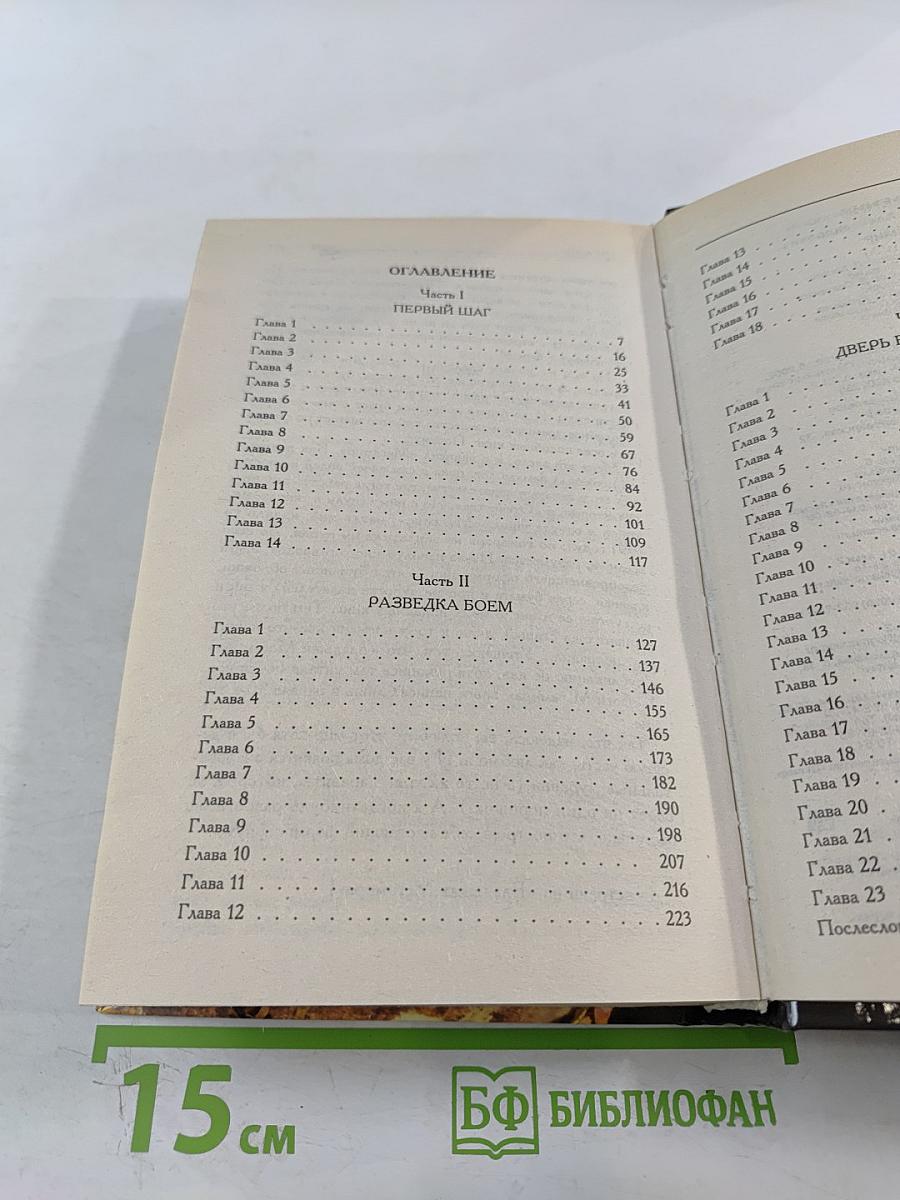 ОГЛАВЛЕНИЕ
Часть I
ПЕРВЫЙ ШАГ
Глава 1 . . . . . . . . . . 7
Глава 2 . . . . . . . . . . 16
Глава 3 . . . . . . . . . . 25
Глава 4 . . . . . . . . . . 33
Глава 5 . . . . . . . . . . 41
Глава 6 . . . . . . . . . . 50
Глава 7 . . . . . . . . . . 59
Глава 8 . . . . . . . . . . 67
Глава 9 . . . . . . . . . . 76
Глава 10 . . . . . . . . . . 84
Глава 11 . . . . . . . . . . 92
Глава 12 . . . . . . . . . . 101
Глава 13 . . . . . . . . . . 109
Глава 14 . . . . . . . . . . 117
Часть II
РАЗВЕДКА БОЕМ
Глава 1 . . . . . . . . . . 127
Глава 2 . . . . . . . . . . 137
Глава 3 . . . . . . . . . . 146
Глава 4 . . . . . . . . . . 155
Глава 5 . . . . . . . . . . 165
Глава 6 . . . . . . . . . . 173
Глава 7 . . . . . . . . . . 182
Глава 8 . . . . . . . . . . 190
Глава 9 . . . . . . . . . . 198
Глава 10 . . . . . . . . . . 207
Глава 11 . . . . . . . . . . 216
Глава 12 . . . . . . . . . . 223
Глава 13
Глава 14
Глава 15
Глава 16
Глава 17
Глава 18
ДВЕРЬ
Глава 1
Глава 2
Глава 3
Глава 4
Глава 5
Глава 6
Глава 7
Глава 8
Глава 9
Глава 10
Глава 11
Глава 12
Глава 13
Глава 14
Глава 15
Глава 16
Глава 17
Глава 18
Глава 19
Глава 20
Глава 21
Глава 22
Глава 23
Послесло
15 см
БФ БИБЛИОФАН